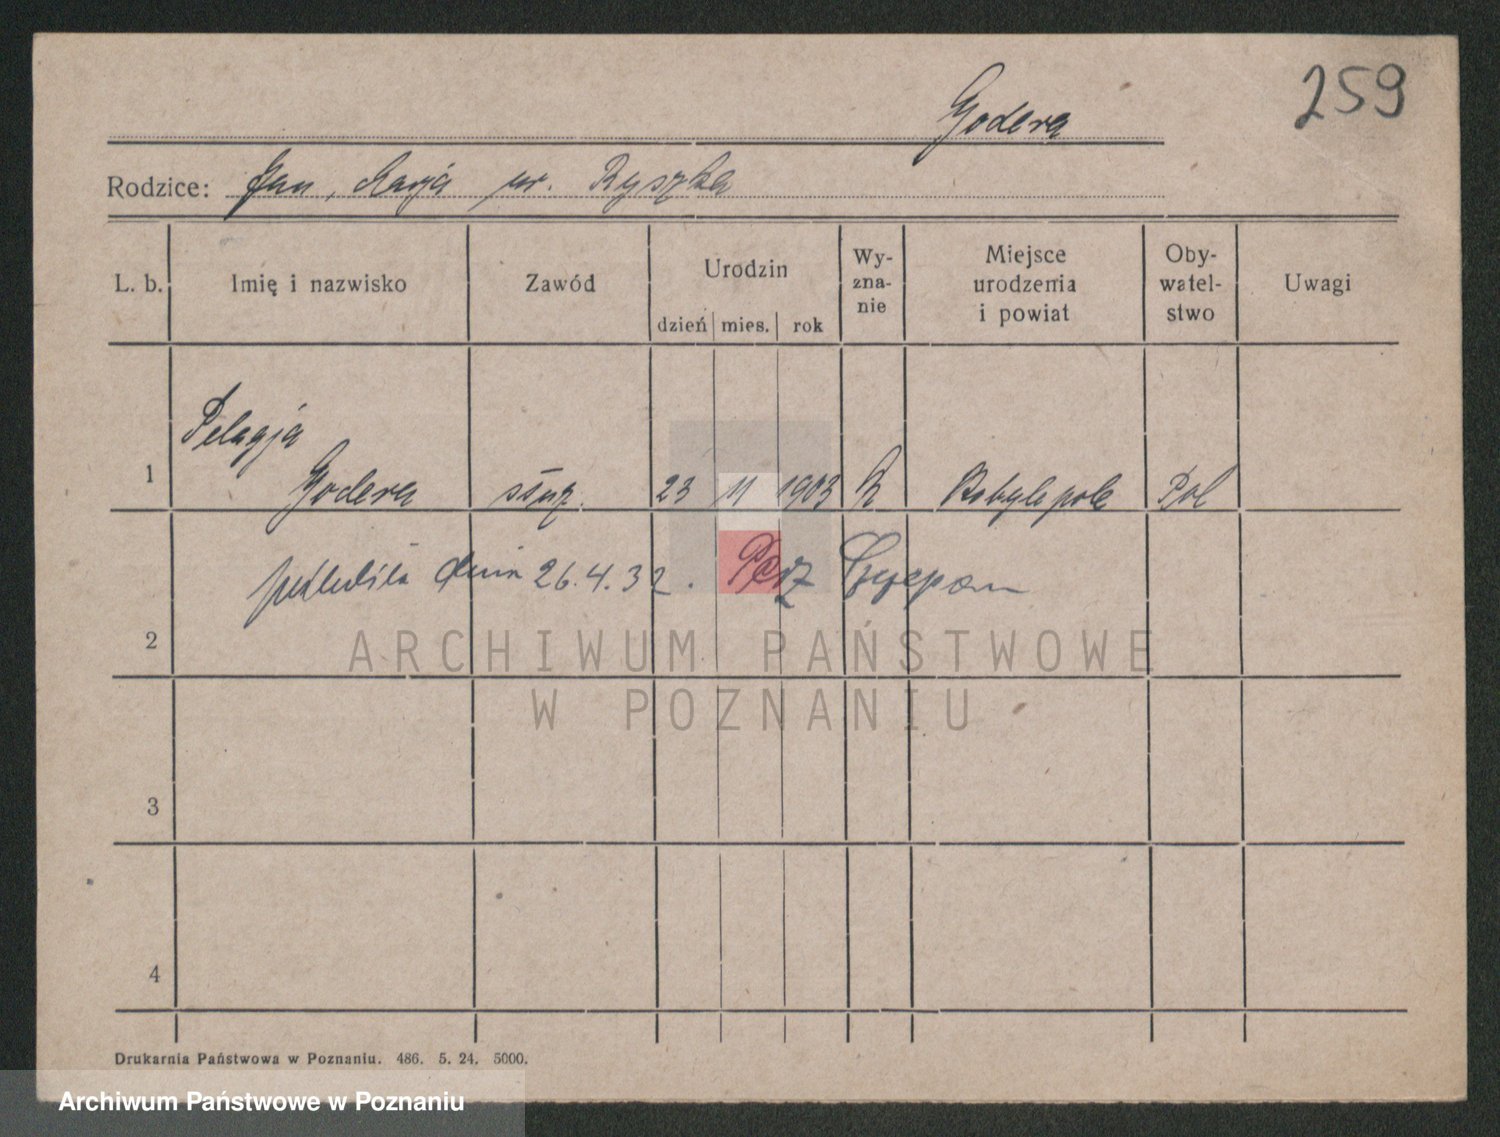 259
Godera
Rodzice: Jan, Marja ur. Ryszka
L. b.
Imię i nazwisko
Zawód
Urodzin
dzień mies. rok
Wy-
zna-
nie
Miejsce
urodzenia
i powiat
Oby-
watel-
stwo
Uwagi
Pelagja
1 Godera służ. 23 11 1903 R Kobylepole Pol
dnia 26.4.32.
2
ARCHIWUM PAŃSTWOWE
W POZNANIU
3
4
Drukarnia Państwowa w Poznaniu. 486. 5. 24. 5000.
Archiwum Państwowe w Poznaniu